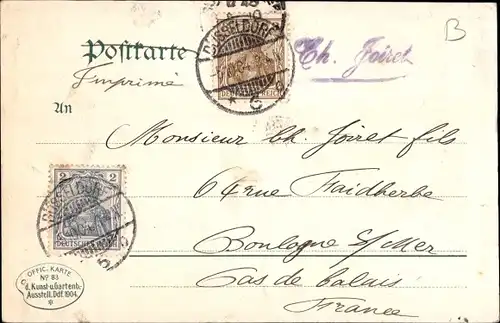 Postkarte
Imprimé
Th. Joiret
B
DÜSSELDORF
DEUTSCHES REICH
An
Monsieur Ch. Joiret fils
64 rue Faidherbe
Boulogne s/Mer
Pas de Calais
France
2 2
DÜSSELDORF
DEUTSCHES REICH
OFFIC. KARTE
No 83
d. Kunst-u. Gartenb.
Ausstell. Ddf. 1904.